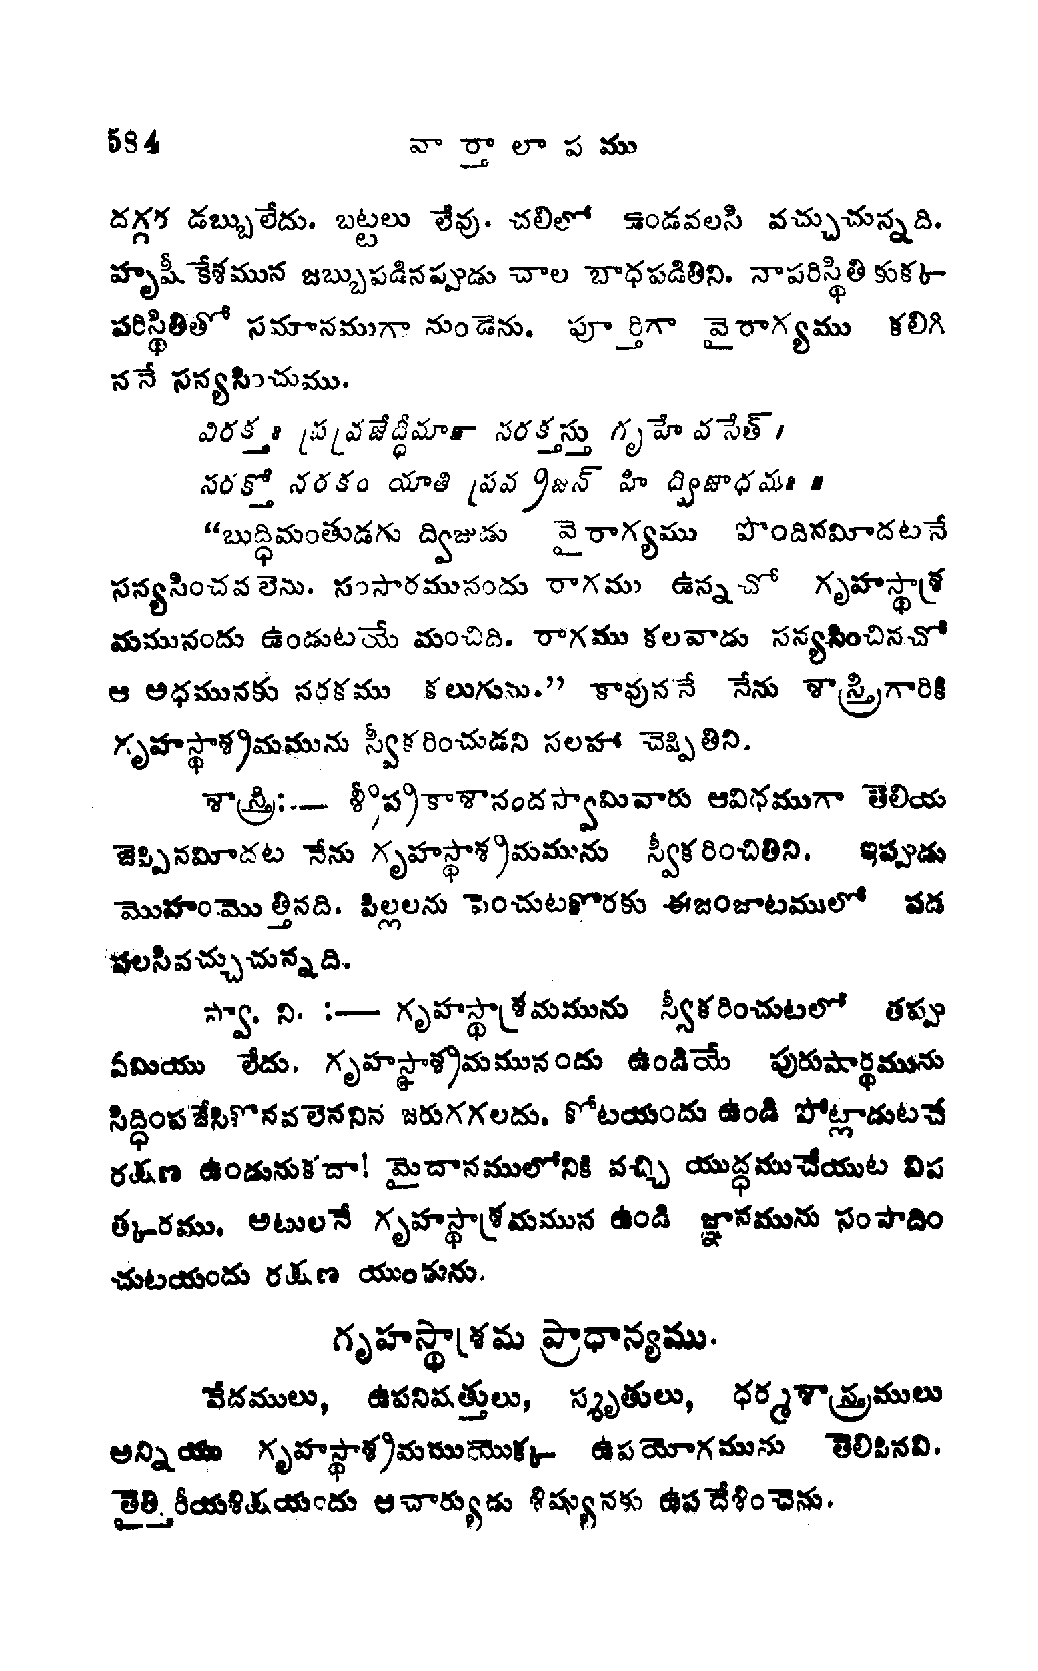 584 వా ర్తా లా ప ము
దగ్గర డబ్బులేదు. బట్టలు లేవు. చలిలో ఉండవలసి వచ్చుచున్నది.
హృషీకేశమున జబ్బుపడినప్పుడు చాల బాధపడితిని. నాపరిస్థితి కుకర్మ
పరిస్థితితో సమానముగా నుండెను. పూర్తిగా వైరాగ్యము కలిగి
ననే సన్యసించుము.
విరక్తః ప్రవ్రజేద్ధీమా౯ సరక్తస్తు గృహే వసేత్।
సరక్తో నరకం యాతి ప్రవ్రజన్ హి ద్విజాధమః॥
“బుద్ధిమంతుడగు ద్విజుడు వైరాగ్యము పొందినమీదటనే
సన్యసించవలెను. సంసారమునందు రాగము ఉన్నచో గృహస్థాశ్ర
మమునందు ఉండుటయే మంచిది. రాగము కలవాడు సన్యసించినచో
ఆ అధమునకు నరకము కలుగును.” కావుననే నేను శాస్త్రిగారికి
గృహస్థాశ్రమమును స్వీకరించుడని సలహా చెప్పితిని.
శాస్త్రి:— శ్రీప్రకాశానందస్వామివారు ఆవిధముగా తెలియ
జెప్పినమీదట నేను గృహస్థాశ్రమమును స్వీకరించితిని. ఇప్పుడు
మొహంమొత్తినది. పిల్లలను పెంచుటకొరకు ఈజంజాటములో పడ
వలసివచ్చుచున్నది.
స్వా. ని. :— గృహస్థాశ్రమమును స్వీకరించుటలో తప్పు
ఏమియు లేదు. గృహస్థాశ్రమమునందు ఉండియే పురుషార్థమును
సిద్ధింపజేసికొనవలెనని జరుగగలదు. కోటయందు ఉండి పోట్లాడుటచే
రక్షణ ఉండునుకదా! మైదానములోనికి వచ్చి యుద్ధముచేయుట విప
త్కరము. అటులనే గృహస్థాశ్రమమున ఉండి జ్ఞానమును సంపాదిం
చుటయందు రక్షణ యుండును.
గృహస్థాశ్రమ ప్రాధాన్యము.
వేదములు, ఉపనిషత్తులు, స్మృతులు, ధర్మశాస్త్రములు
అన్నియు గృహస్థాశ్రమముయొక్క ఉపయోగమును తెలిపినవి.
తైత్తిరీయశిక్షయందు ఆచార్యుడు శిష్యునకు ఉపదేశించెను.